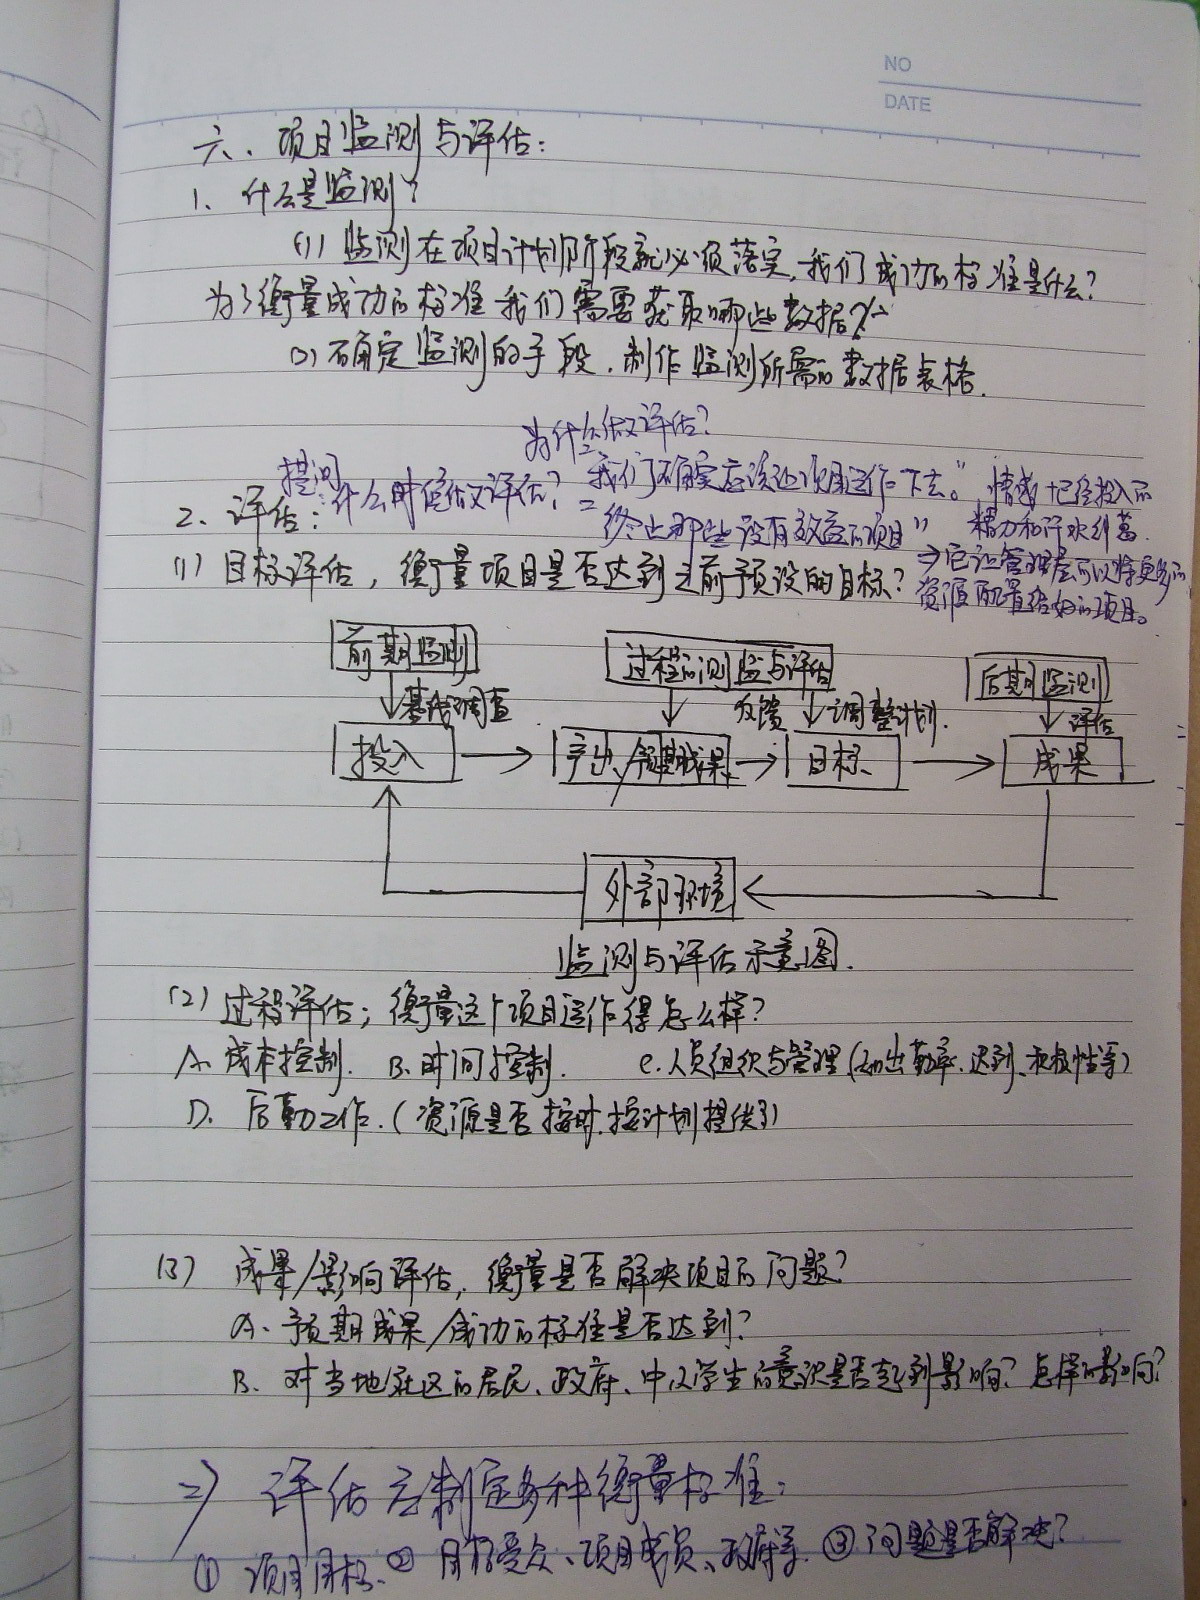 NO
DATE
六、项目监测与评估：
1、什么是监测？
(1) 监测在项目计划阶段就必须落实，我们成功的标准是什么？
为了衡量成功的标准我们需要获取哪些数据？
(2) 确定监测的手段，制作监测所需的数据表格.
为什么做评估？
提问：什么时候做评估？
"我们了确定应该让项目运作下去。"情感 已经投入的
2、评估：
"终止那些没有效益的项目" 精力和汗水纠葛.
(1) 目标评估，衡量项目是否达到之前预设的目标？
⇒它让管理层可以将更多的
资源配置给好的项目。
前期监测 过程的测监与评估 后期监测
基线调查 反馈 调整计划. 评估
投入 产出、预期成果 目标、 成果
外部环境
监测与评估示意图.
(2) 过程评估；衡量这个项目运作得怎么样？
A. 成本控制. B. 时间控制. C. 人员组织与管理(如出勤率、迟到、积极性等)
D. 后勤工作.(资源是否按时、按计划提供了)
(3) 成果/影响评估，衡量是否解决项目的问题？
A. 预期成果/成功的标准是否达到？
B. 对当地社区的居民、政府、中小学生的意识是否起到影响？怎样的影响？
⇒ 评估应制定多种衡量标准：
① 项目目标、② 目标受众、项目成员、政府等. ③问题是否解决？